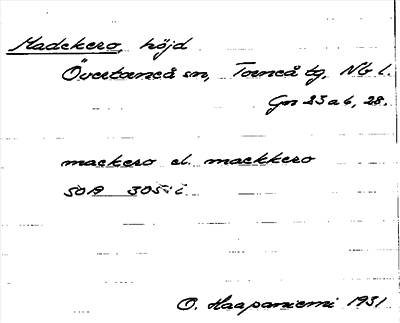 Madekero, höjd
Övertorneå sn, Torneå tg, Nb l.
Gn 23 a b, 28.
mackero el. mackkero
SOA 305: i
O. Haapaniemi 1931